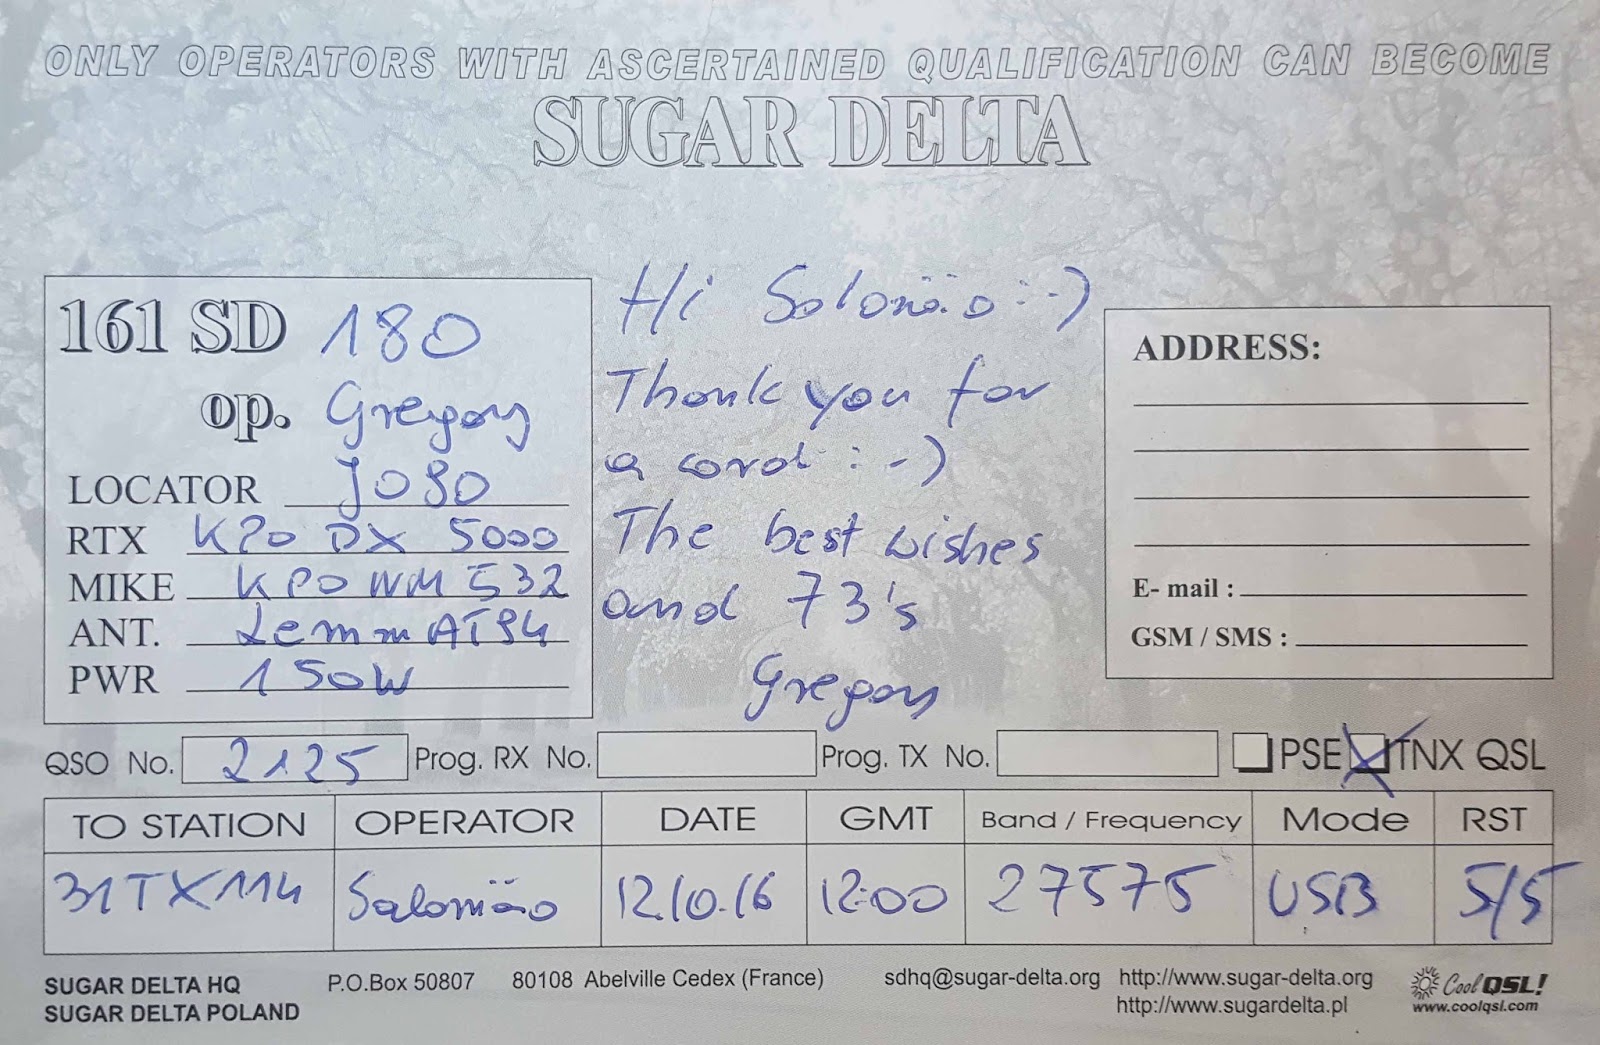 ONLY OPERATORS WITH ASCERTAINED QUALIFICATION CAN BECOME
SUGAR DELTA
161 SD 180
op. Gregory
LOCATOR JO90
RTX KPO DX 5000
MIKE KPO WM 532
ANT. Lemm AT94
PWR 150W
Hi Salomão :-)
Thank you for
a card :-)
The best wishes
and 73's
Gregory
ADDRESS:
E- mail :
GSM / SMS :
QSO No. 2125 Prog. RX No. Prog. TX No. PSE TNX QSL
TO STATION OPERATOR DATE GMT Band / Frequency Mode RST
31TX114 Salomão 12.10.16 12:00 27575 USB 5/5
SUGAR DELTA HQ P.O.Box 50807 80108 Abelville Cedex (France) sdhq@sugar-delta.org http://www.sugar-delta.org Cool QSL!
SUGAR DELTA POLAND http://www.sugardelta.pl www.coolqsl.com